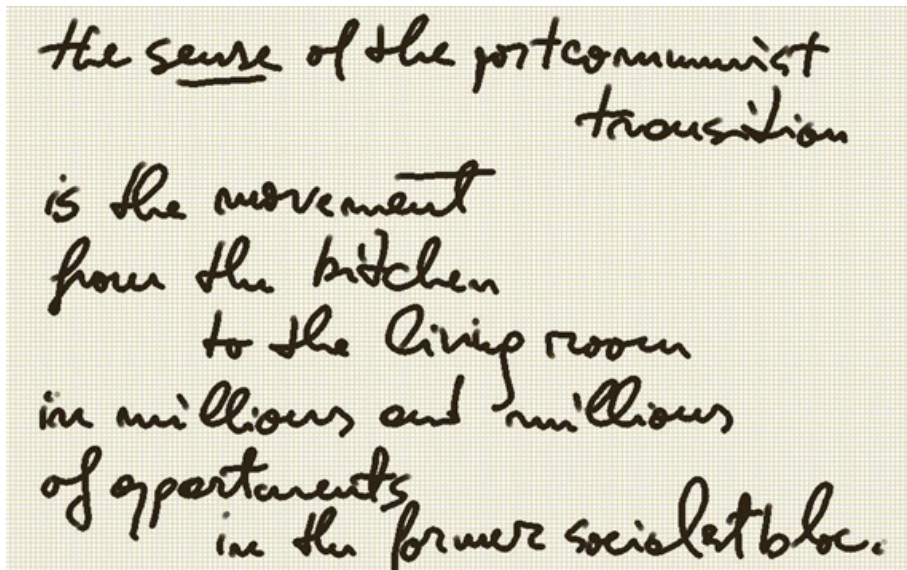 the sense of the postcommunist
transition
is the movement
from the kitchen
to the living room
in millions and millions
of appartments
in the former socialist bloc.